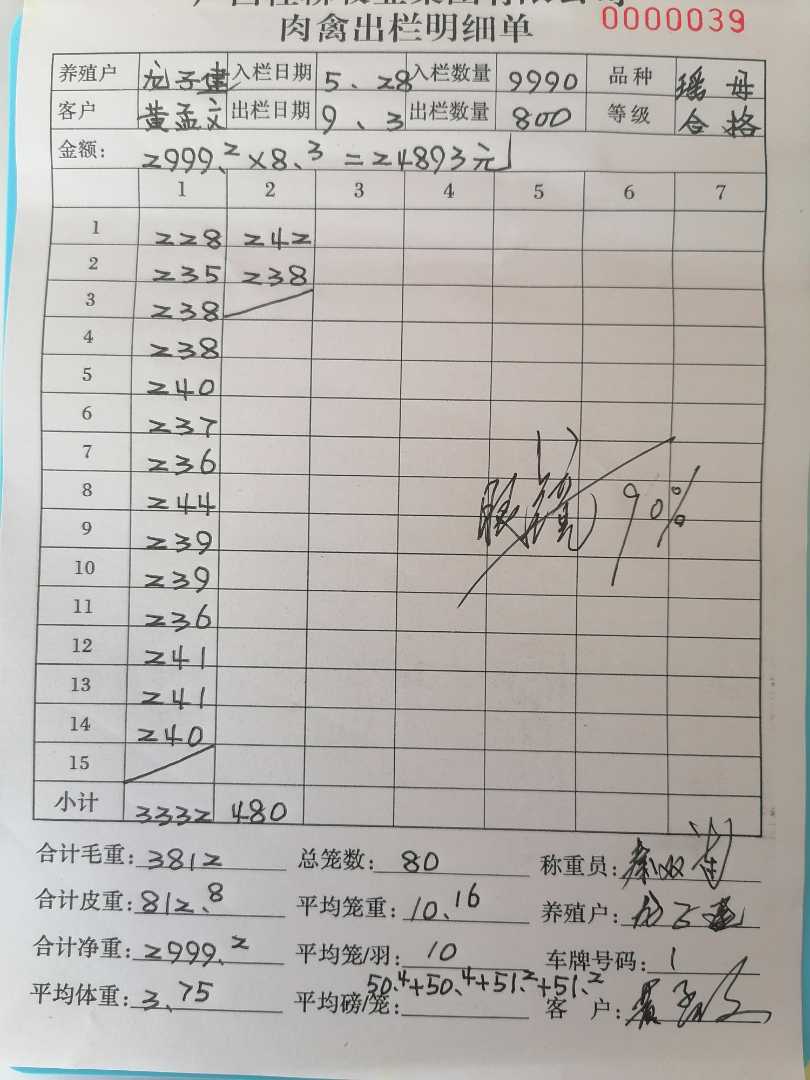 肉禽出栏明细单 0000039
养殖户 龙子建 入栏日期 5、28 入栏数量 9990 品种 瑶母
客户 黄孟文 出栏日期 9、3 出栏数量 800 等级 合格
金额: 2999.2×8.3=24893元
1 2 3 4 5 6 7
1 228 242
2 235 238
3 238
4 238
5 240
6 237
7 236
8 244
9 239
10 239
11 236
12 241
13 241
14 240
15
小计 3332 480
90%
合计毛重: 3812 总笼数: 80 称重员:
合计皮重: 812.8 平均笼重: 10.16 养殖户:
合计净重: 2999.2 平均笼/羽: 10 车牌号码: 1
平均体重: 3.75 平均磅/笼: 50.4+50.4+51.2+51.2 客户: